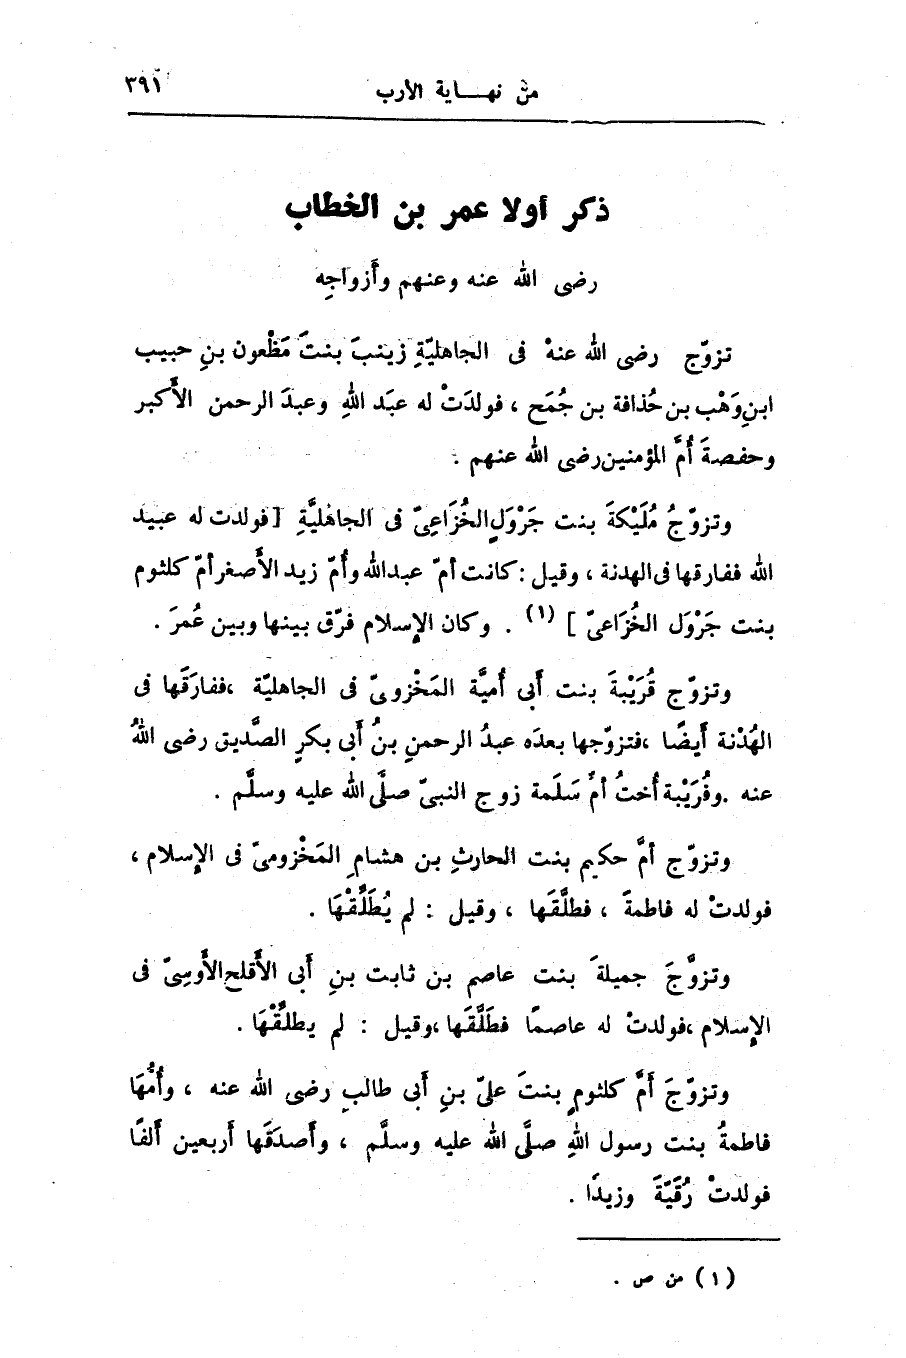 من نهاية الأرب ٣٩١
ذكر أولا عمر بن الخطاب
رضى الله عنه وعنهم وأزواجِه
تزوّج رضى الله عنهْ فى الجاهليّةِ زينبَ بنتَ مَظْعون بنِ حبيب
ابنِ وَهْب بن حُذافة بن جُمَح ، فولدَتْ له عبَد اللهِ وعبدَ الرحمن الأكبر
وحفصةَ أُمَّ المؤمنين رضى الله عنهم .
وتزوّجُ مُلَيْكةَ بنت جَرْوَلٍ الخُزَاعِىّ فى الجاهليَّةِ [ فولدت له عبيد
الله ففارقها فى الهدنة ، وقيل : كانت أمّ عبدالله وأُمّ زيد الأصغر أمّ كلثوم
بنت جَرْوَل الخُزَاعىّ ] (١) . وكان الإسلام فرّق بينها وبين عُمرَ .
وتزوّج قُرَيْبةَ بنت أَبى أُميَّة المَخْزوىّ فى الجاهليّة ،ففارَقَها فى
الهُدْنة أَيضًا ،فتزوّجها بعدَه عبدُ الرحمنِ بنُ أَبى بكرٍ الصَّديق رضى اللهُ
عنه .وقُرَيْبة أُختُ أمَ سَلَمة زوج النبىّ صلَّى الله عليه وسلَّم .
وتزوّج أمَّ حكيم بنت الحارثِ بن هشامِ المَخْزومىّ فى الإسلام ،
فولدتْ له فاطمةَ ، فطلَّقَها ، وقيل : لم يُطَلِّقْهَا .
وتزوَّجَ جميلةَ بنت عاصم بن ثابت بنِ أَبى الأَقلح الأَوسِىّ فى
الإسلام ،فولدتْ له عاصمًا فطَلَّقَها ،وقيل : لم يطلِّقْهَا .
وتزوّجَ أمَّ كلثومٍ بنتَ علىّ بنِ أَبى طالبٍ رضى الله عنه ، وأُمُّهَا
فاطمةُ بنت رسول اللهِ صلَّى الله عليه وسلَّم ، وأَصدَقَها أربعين أَلفًا
فولدتْ رُقَيَّةَ وزيدًا .
(١) من ص .